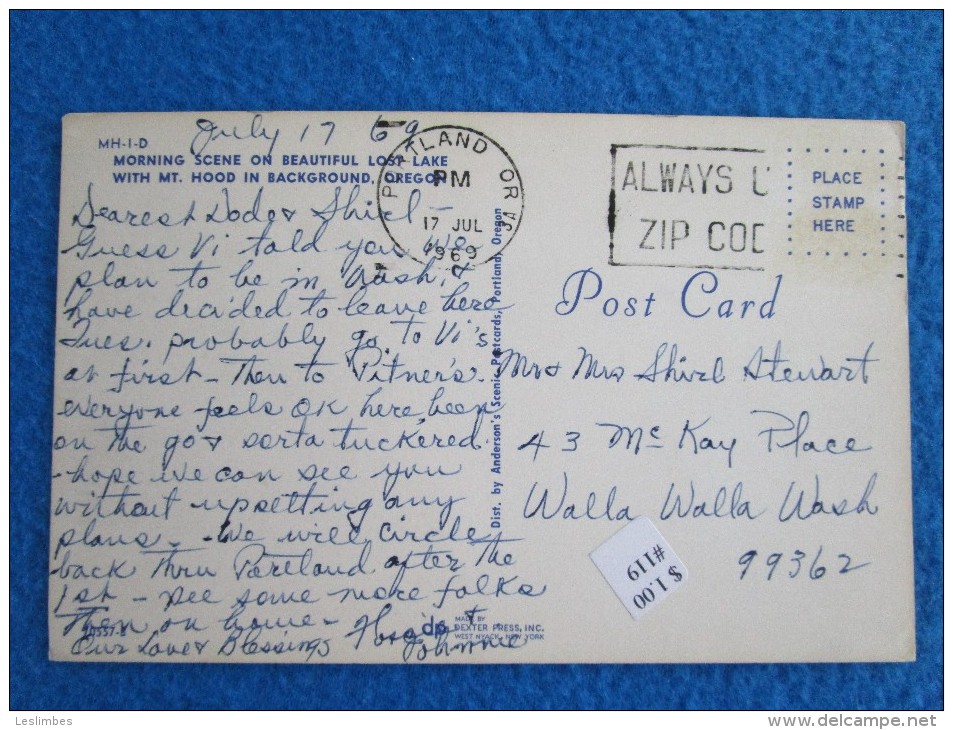 July 17 69
MH-I-D
MORNING SCENE ON BEAUTIFUL LOST LAKE
WITH MT. HOOD IN BACKGROUND, OREGON
Dearest Dode & Shirl -
Guess Vi told you we
plan to be in Wash.
have decided to leave here
Tues. probably go to Vi's
at first - Then to Pitner's.
everyone feels OK here been
on the go & sorta tuckered
- hope we can see you
without upsetting any
plans - We will circle
back thru Portland after the
1st - see some more folks
then on home -
Our Love & Blessings
Johnnie
PORTLAND OR
PM
17 JUL
1969
ALWAYS U
ZIP COD
PLACE
STAMP
HERE
Post Card
Mr & Mrs Shirl Stewart
43 McKay Place
Walla Walla Wash
99362
Dist. by Anderson's Scenic Postcards, Portland, Oregon
#119
$ 1.00
dp
MADE BY
DEXTER PRESS, INC.
WEST NYACK, NEW YORK
Leslimbes
www.delcampe.net